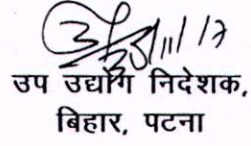 उप उद्योग निदेशक,
बिहार, पटना